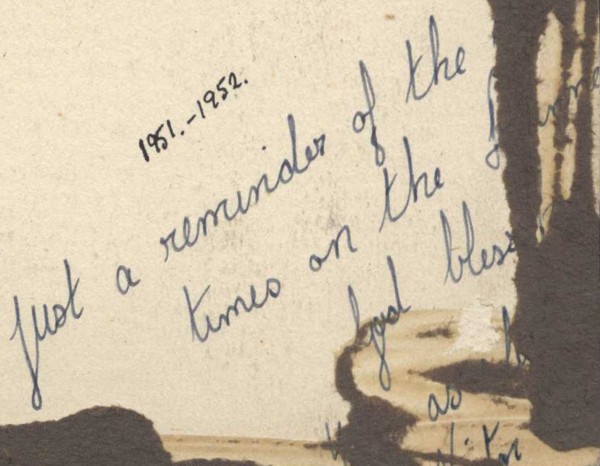 1951.-1952.
Just a reminder of the
times on the
God bless
as